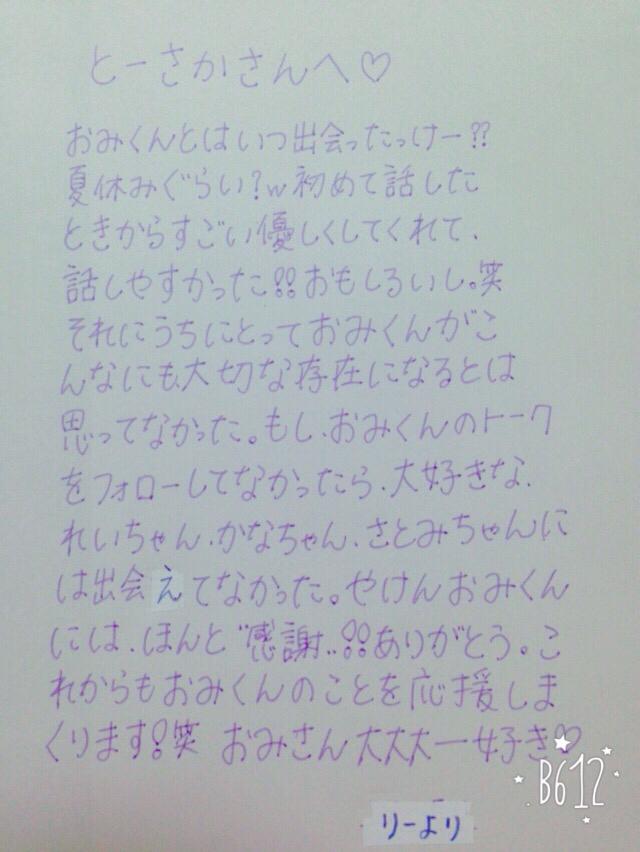 とーさかさんへ♡
おみくんとはいつ出会ったっけー??
夏休みぐらい?w初めて話した
ときからすごい優しくしてくれて、
話しやすかったこ!!おもしろいし。笑
それにうちにとっておみくんがこ
んなにも大切な存在になるとは
思ってなかった。もし、おみくんのトーク
をフォローしてなかったら、大好きな、
れいちゃん、かなちゃん、さとみちゃんに
は出会えてなかった。やけんおみくん
には、ほんと゛感謝..!!ありがとう。こ
れからもおみくんのことを応援しま
くります!笑 おみさん大大大一好き♡
B612
りーより